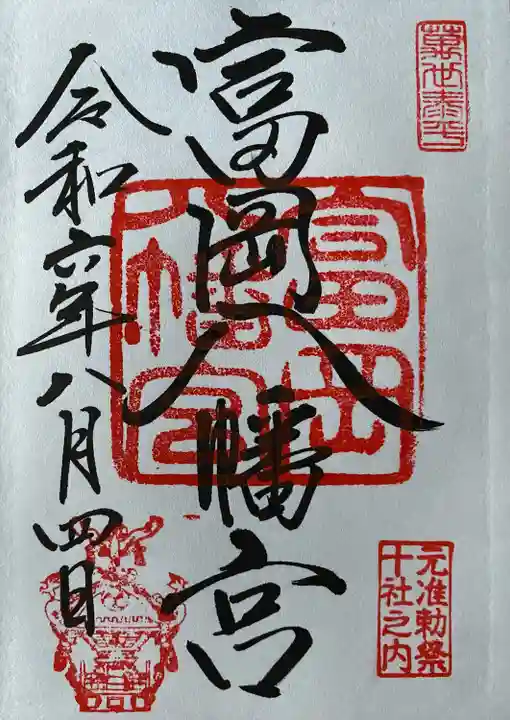 萬世泰平
富岡八幡宮
富岡八幡宮
元准勅祭
十社之内
令和六年八月四日